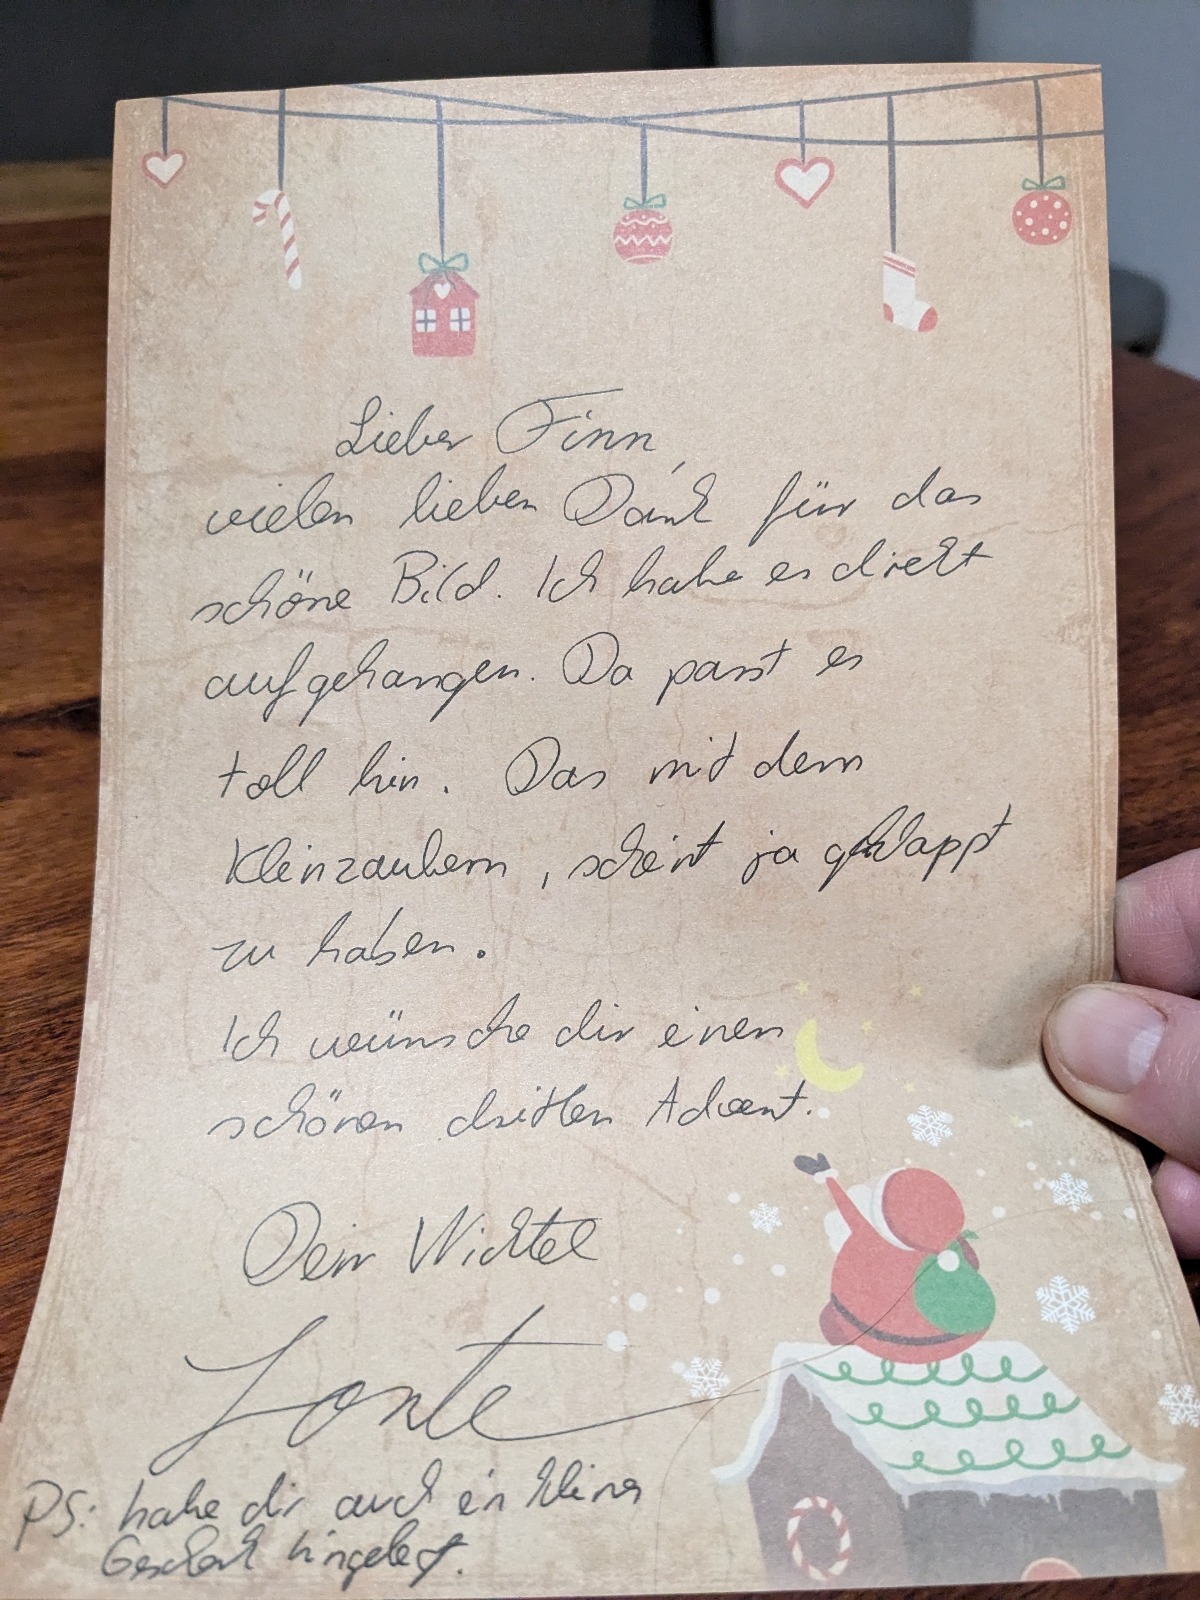 Lieber Finn,
vielen lieben Dank für das
schöne Bild. Ich habe es direkt
aufgehangen. Da passt es
toll hin. Das mit dem
Kleinzaubern, scheint ja geklappt
zu haben.
Ich wünsche dir einen
schönen dritten Advent.
Dein Wichtel
PS: habe dir auch ein kleines
Geschenk hingelegt.